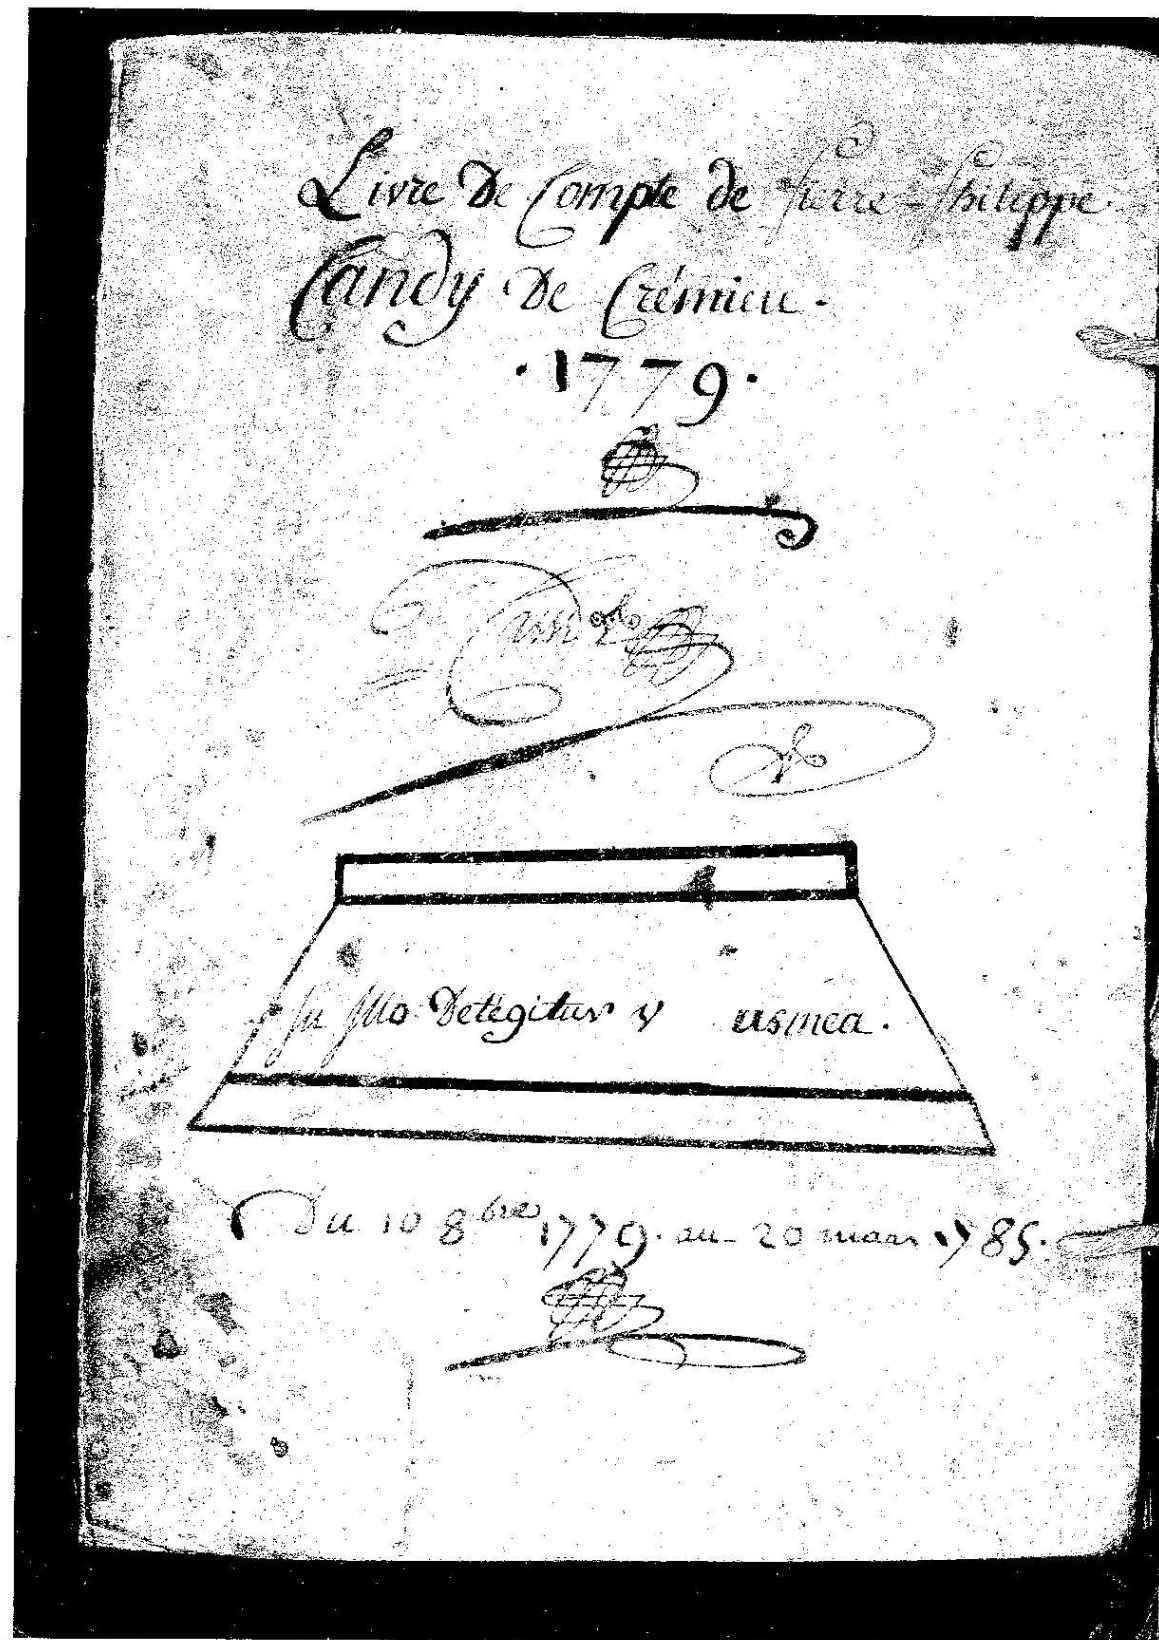 Livre De Compte de Pierre-Philippe
Candy De Crémieu.
·1779·
Candy
In illo Detegitur v usmea.
Du 10 8bre 1779. au 20 mars 1785.